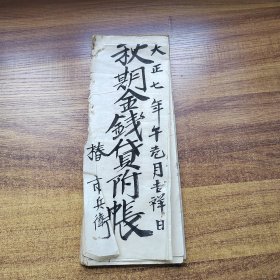 大正七年午壱月吉祥日
秋期金銭貸附帳
椿
吉兵衛